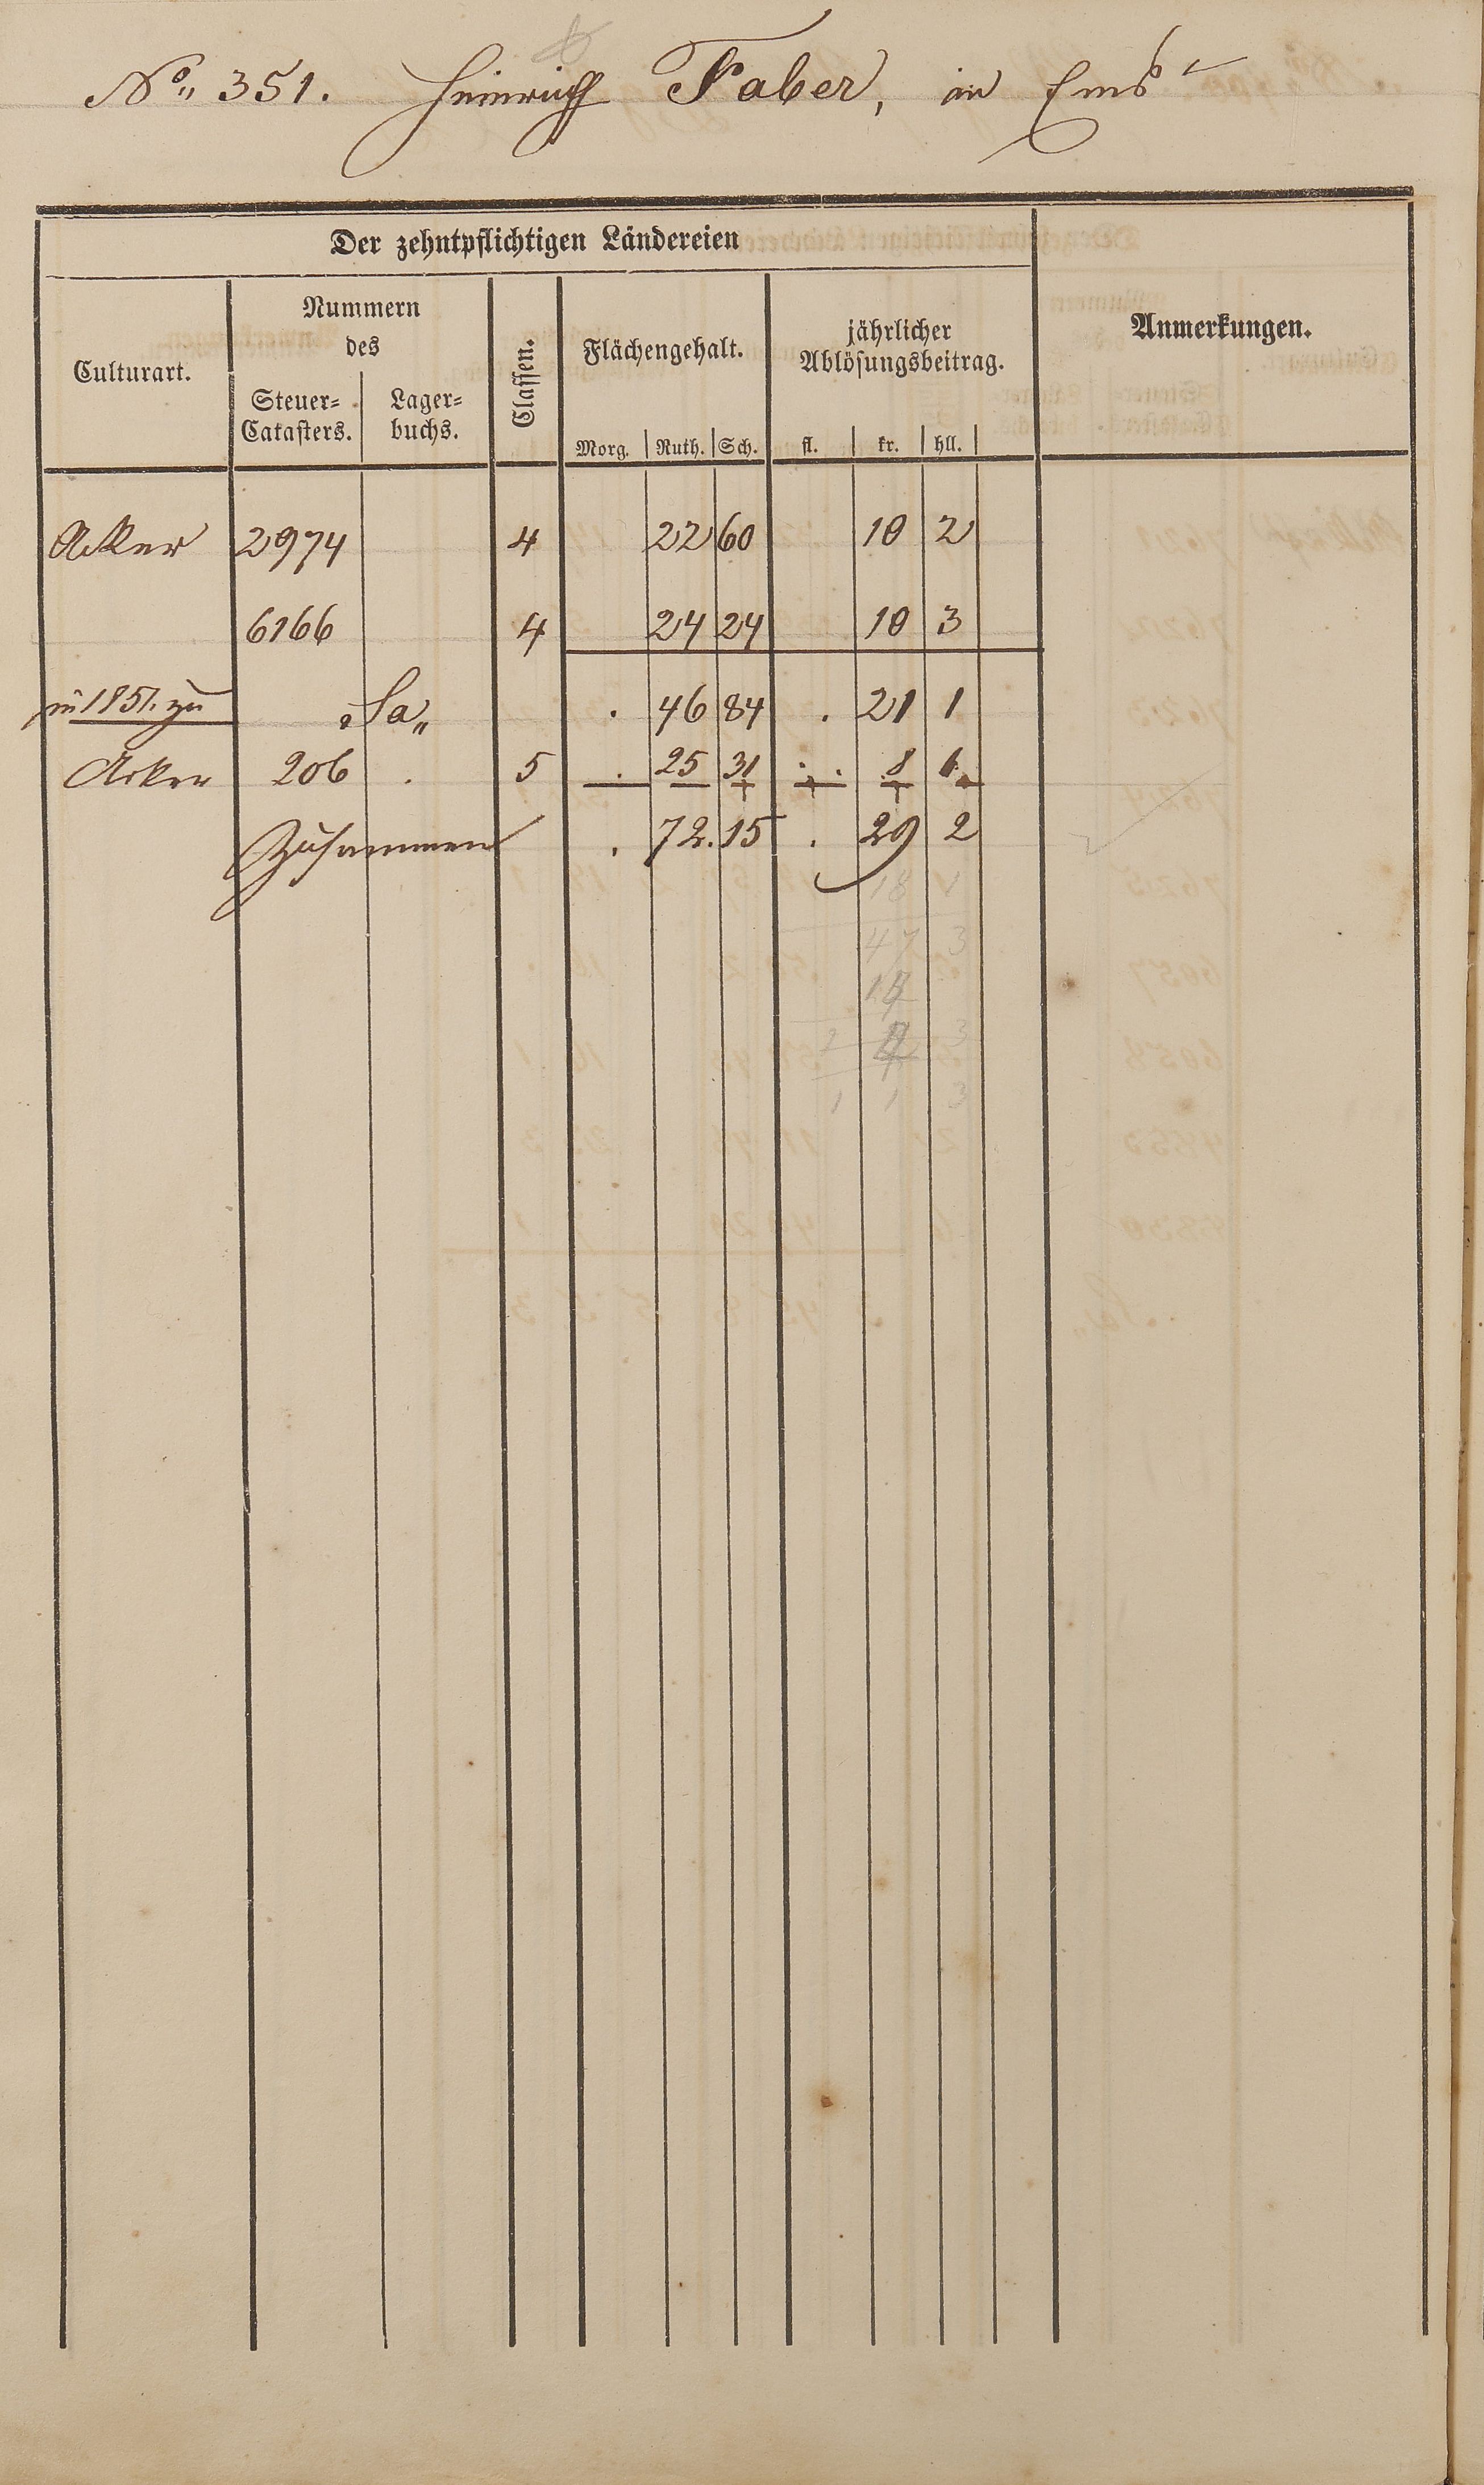 No. 351. Heinrich Faber, in Ems
Der zehntpflichtigen Ländereien
Anmerkungen.
Culturart.
Nummern
des
Steuer=
Catasters.
Lager=
buchs.
Classen.
Flächengehalt.
jährlicher
Ablösungsbeitrag.
Morg. Ruth. Sch. fl. kr. hll.
Acker 2974 4 22 60 10 2
6166 4 24 24 10 3
in 1851. zu Sa. . 46 84 . 21 1
Acker 206 . 5 . 25 31 . . 8 1
Zusammen . 72. 15 . 29 2
18 1
47 3
1 1 3